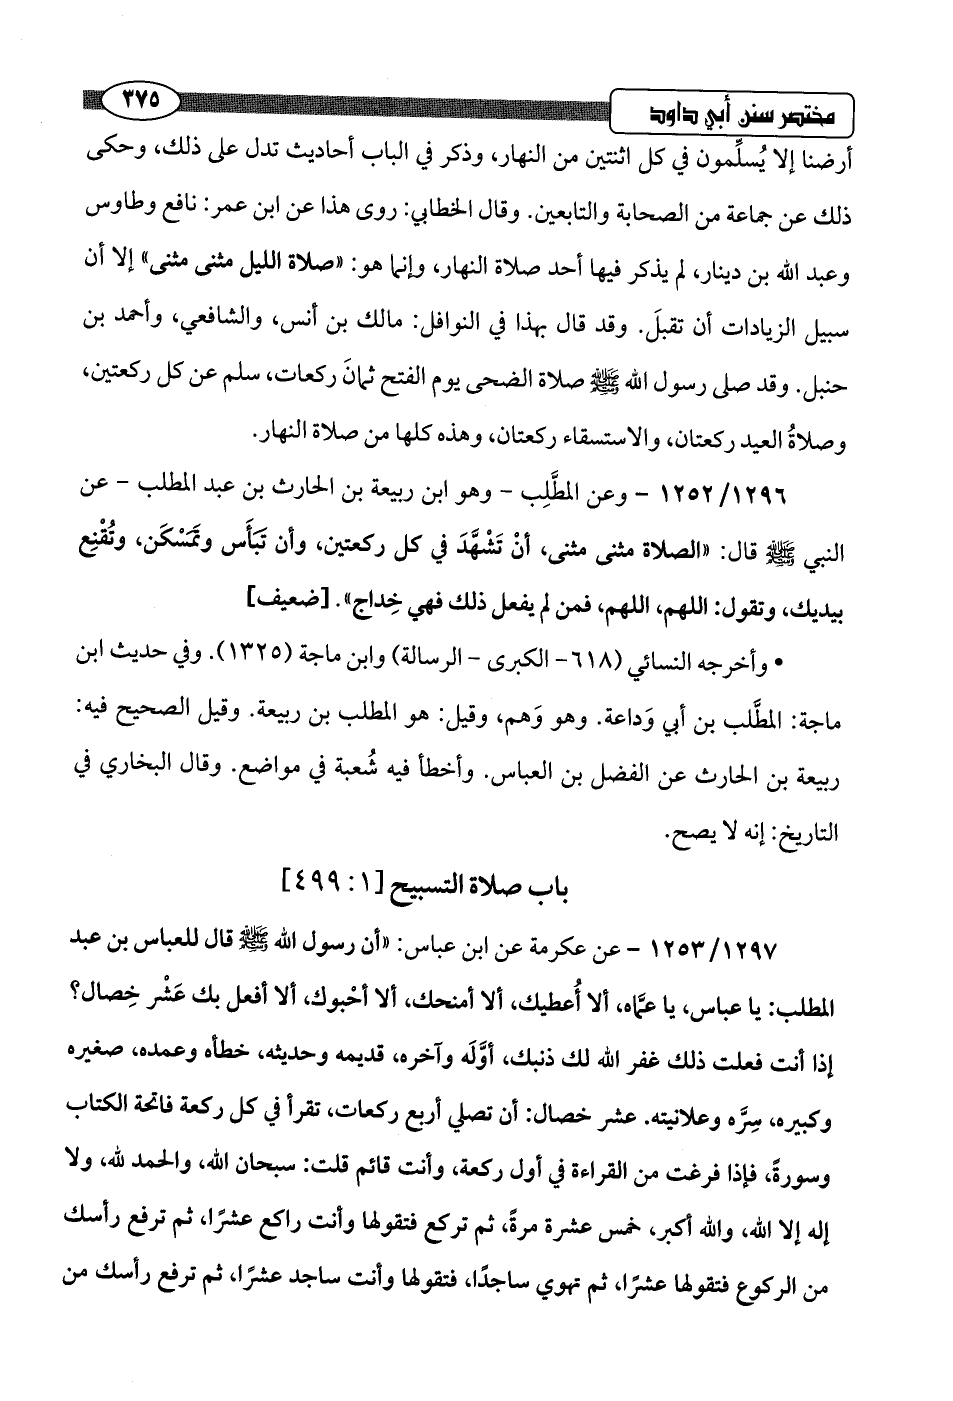 مختصر سنن أبي داود
٣٧٥
أرضنا إلا يُسلِّمون في كل اثنتين من النهار، وذكر في الباب أحاديث تدل على ذلك، وحكى
ذلك عن جماعة من الصحابة والتابعين. وقال الخطابي: روى هذا عن ابن عمر: نافع وطاوس
وعبد الله بن دينار، لم يذكر فيها أحد صلاة النهار، وإنما هو: «صلاة الليل مثنى مثنى» إلا أن
سبيل الزيادات أن تقبلَ. وقد قال بهذا في النوافل: مالك بن أنس، والشافعي، وأحمد بن
حنبل. وقد صلى رسول الله ﷺ صلاة الضحى يوم الفتح ثمانَ ركعات، سلم عن كل ركعتين،
وصلاةُ العيد ركعتان، والاستسقاء ركعتان، وهذه كلها من صلاة النهار.
١٢٥٢/١٢٩٦ - وعن المطَّلِب - وهو ابن ربيعة بن الحارث بن عبد المطلب - عن
النبي ﷺ قال: «الصلاة مثنى مثنى، أنْ تَشْهَّدَ في كل ركعتين، وأن تَبَأَّس وتَمَسْكَن، وتُقْنِع
بيديك، وتقول: اللهم، اللهم، فمن لم يفعل ذلك فهي خِداج». [ضعيف]
• وأخرجه النسائي (٦١٨- الكبرى - الرسالة) وابن ماجة (١٣٢٥). وفي حديث ابن
ماجة: المطَّلب بن أبي وَداعة. وهو وَهم، وقيل: هو المطلب بن ربيعة. وقيل الصحيح فيه:
ربيعة بن الحارث عن الفضل بن العباس. وأخطأ فيه شُعبة في مواضع. وقال البخاري في
التاريخ: إنه لا يصح.
باب صلاة التسبيح [١: ٤٩٩]
١٢٥٣/١٢٩٧ - عن عكرمة عن ابن عباس: «أن رسول الله ﷺ قال للعباس بن عبد
المطلب: يا عباس، يا عمَّاه، ألا أُعطيك، ألا أمنحك، ألا أحْبوك، ألا أفعل بك عَشْر خِصال؟
إذا أنت فعلت ذلك غفر الله لك ذنبك، أوَّلَه وآخره، قديمه وحديثه، خطأه وعمده، صغيره
وكبيره، سِرَّه وعلانيته. عشر خصال: أن تصلي أربع ركعات، تقرأ في كل ركعة فاتحة الكتاب
وسورةً، فإذا فرغت من القراءة في أول ركعة، وأنت قائم قلت: سبحان الله، والحمد لله، ولا
إله إلا الله، والله أكبر، خمس عشرة مرةً، ثم تركع فتقولها وأنت راكع عشرًا، ثم ترفع رأسك
من الركوع فتقولها عشرًا، ثم تهوي ساجدًا، فتقولها وأنت ساجد عشرًا، ثم ترفع رأسك من